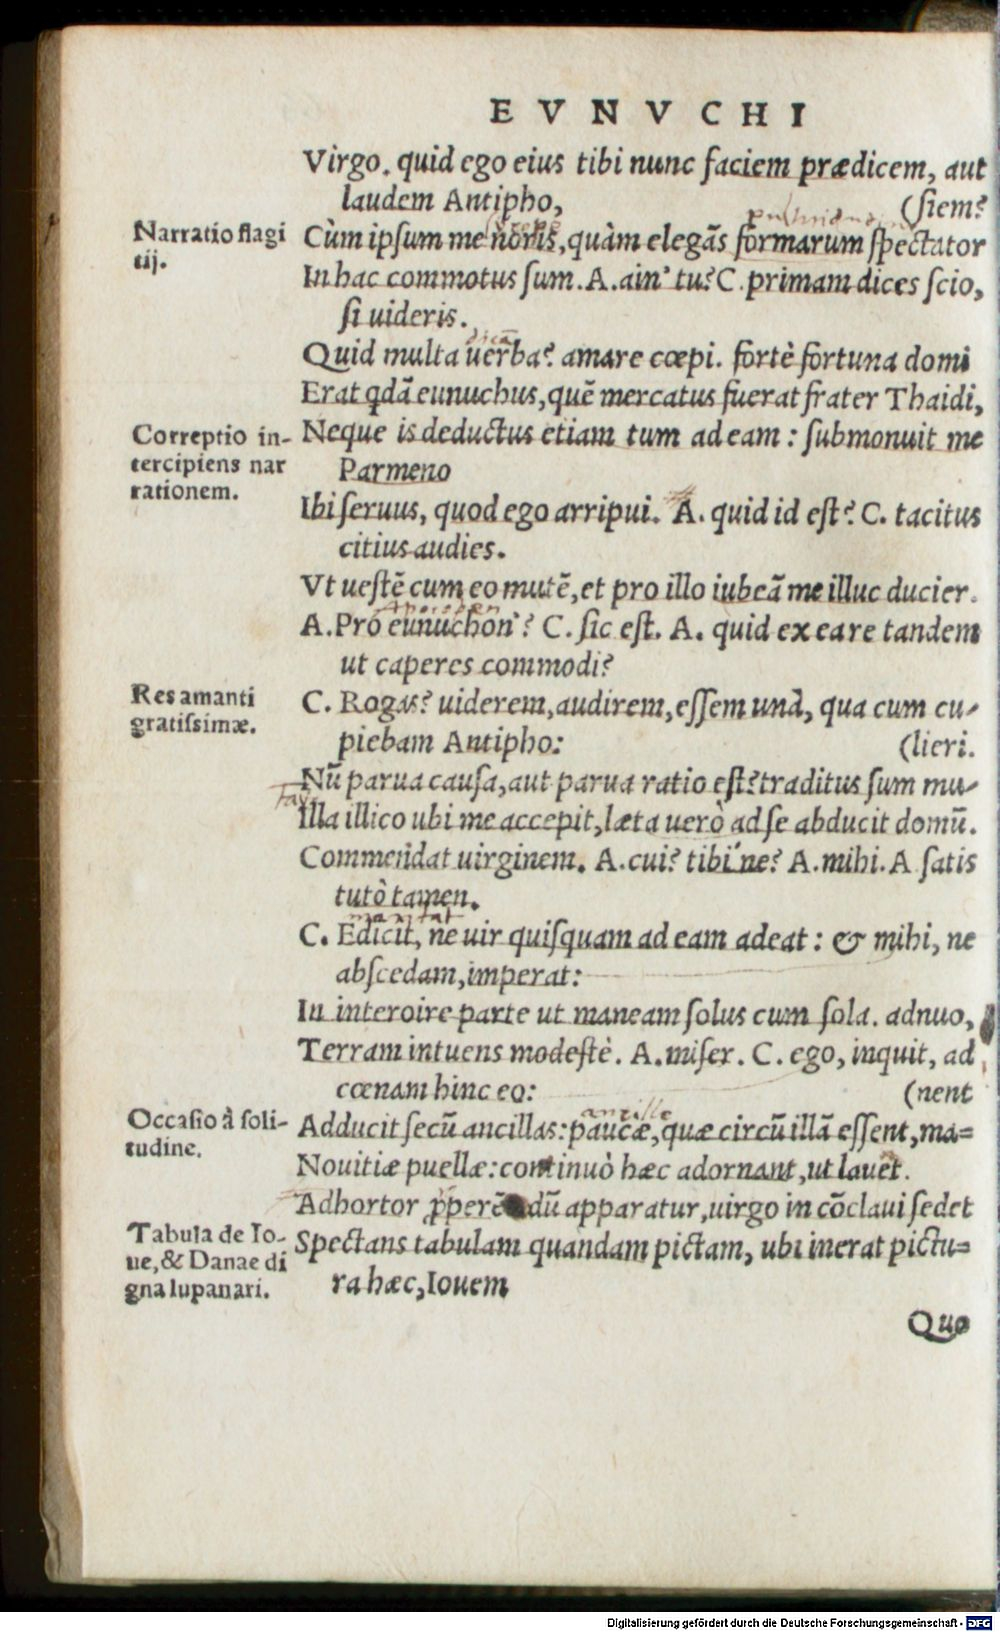 EVNVCHI
Virgo. quid ego eius tibi nunc faciem prædicem, aut
laudem Antipho, (siem?
Narratio flagi
tij.
Cùm ipsum me noris, quàm elegãs formarum spectator
In hac commotus sum. A. ain' tu? C. primam dices scio,
si uideris.
dicã
Quid multa uerba? amare cœpi. fortè fortuna domi
Erat qdã eunuchus, quẽ mercatus fuerat frater Thaidi,
Correptio in-
tercipiens nar
rationem.
Neque is deductus etiam tum ad eam: submonuit me
Parmeno
Ibi seruus, quod ego arripui. A. quid id est? C. tacitus
citius audies.
Vt uestẽ cum eo mutẽ, et pro illo iubeã me illuc ducier.
A. Pro eunuchon'? C. sic est. A. quid ex ea re tandem
ut caperes commodi?
Res amanti
gratissimæ.
C. Rogas? uiderem, audirem, essem unà, qua cum cu-
piebam Antipho: (lieri.
Nũ parua causa, aut parua ratio est? traditus sum mu-
Illa illico ubi me accepit, læta uerò ad se abducit domũ.
Commendat uirginem. A. cui? tibi'ne? A. mihi. A satis
tutò tamen.
C. Edicit, ne uir quisquam ad eam adeat: & mihi, ne
abscedam, imperat:
In interoire parte ut maneam solus cum sola. adnuo,
Terram intuens modestè. A. miser. C. ego, inquit, ad
cœnam hinc eo: (nent
ancille
Occasio à soli-
tudine.
Adducit secũ ancillas: paucæ, quæ circũ illã essent, ma=
Nouitiæ puellæ: continuò hæc adornant, ut lauet.
Adhortor ꝓperẽ dũ apparatur, uirgo in cõclaui sedet
Tabula de Io-
ue, & Danae di
gna lupanari.
Spectans tabulam quandam pictam, ubi inerat pictu=
ra hæc, Iouem
Quo
Digitalisierung gefördert durch die Deutsche Forschungsgemeinschaft - DFG